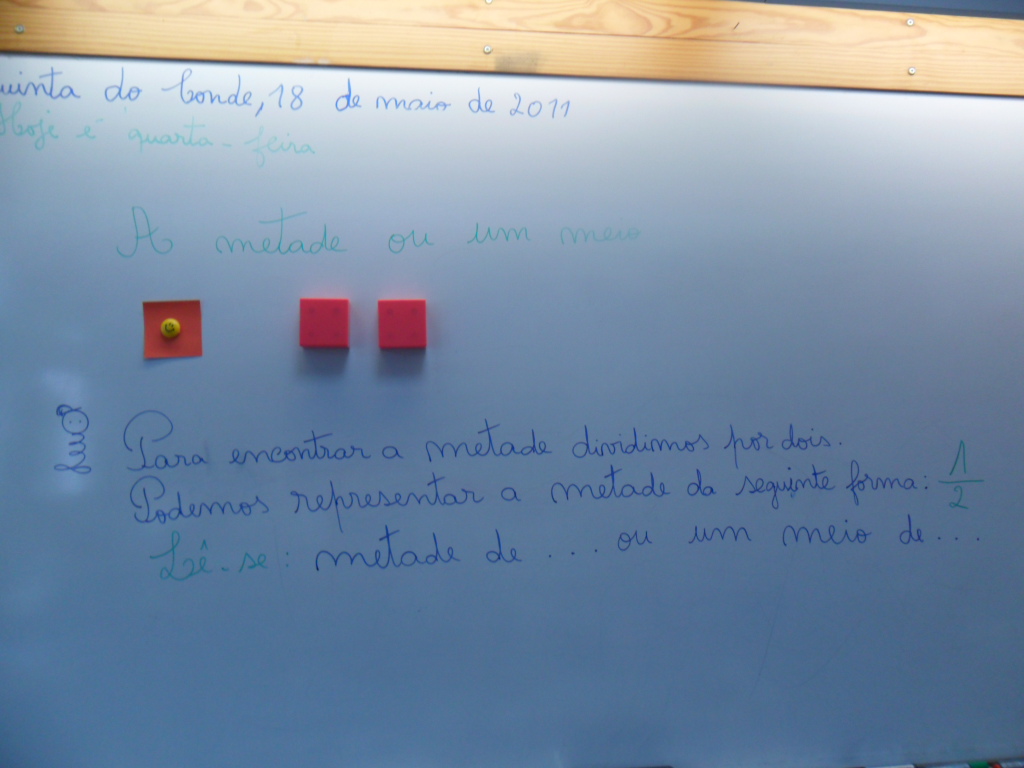 uinta do Conde, 18 de maio de 2011
Hoje é quarta-feira
A metade ou um meio
Para encontrar a metade dividimos por dois.
Podemos representar a metade da seguinte forma: 1/2
Lê-se: metade de ... ou um meio de ...